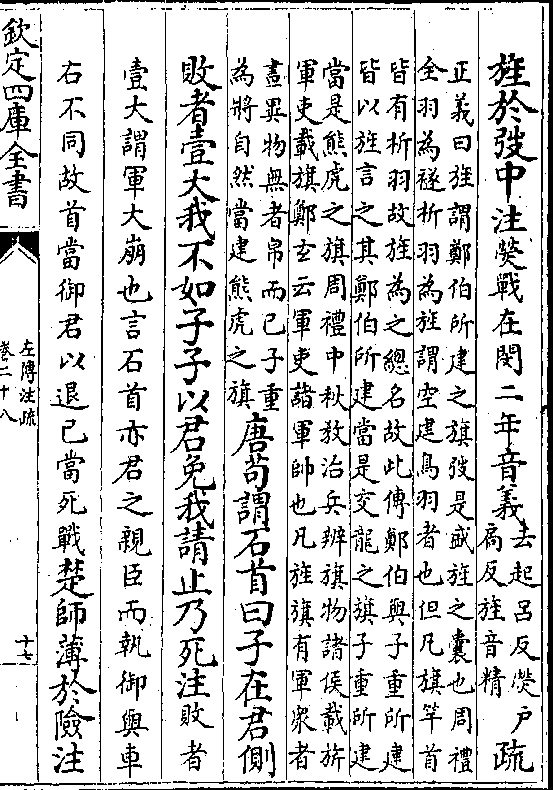 旌於弢中注熒戰在閔二年音義去起呂反熒戸
扃反旌音精疏
正義曰旌謂鄭伯所建之旗弢是盛旌之囊也周禮
全羽為旞析羽為旌謂空建鳥羽者也但凡旗竿首
皆有析羽故旌為之總名故此傳鄭伯與子重所建
皆以旌言之其鄭伯所建當是交龍之旗子重所建
當是熊虎之旗周禮中秋教治兵辨旗物諸侯載旂
軍吏載旗鄭玄云軍吏諸軍帥也凡旌旗有軍衆者
畫異物無者帛而已子重
為將自然當建熊虎之旗
唐苟謂石首曰子在君側
敗者壹大我不如子子以君免我請止乃死注敗者
壹大謂軍大崩也言石首亦君之親臣而執御與車
右不同故首當御君以退已當死戰楚師薄於險注
欽定四庫全書
左傳注疏
卷二十八
十七